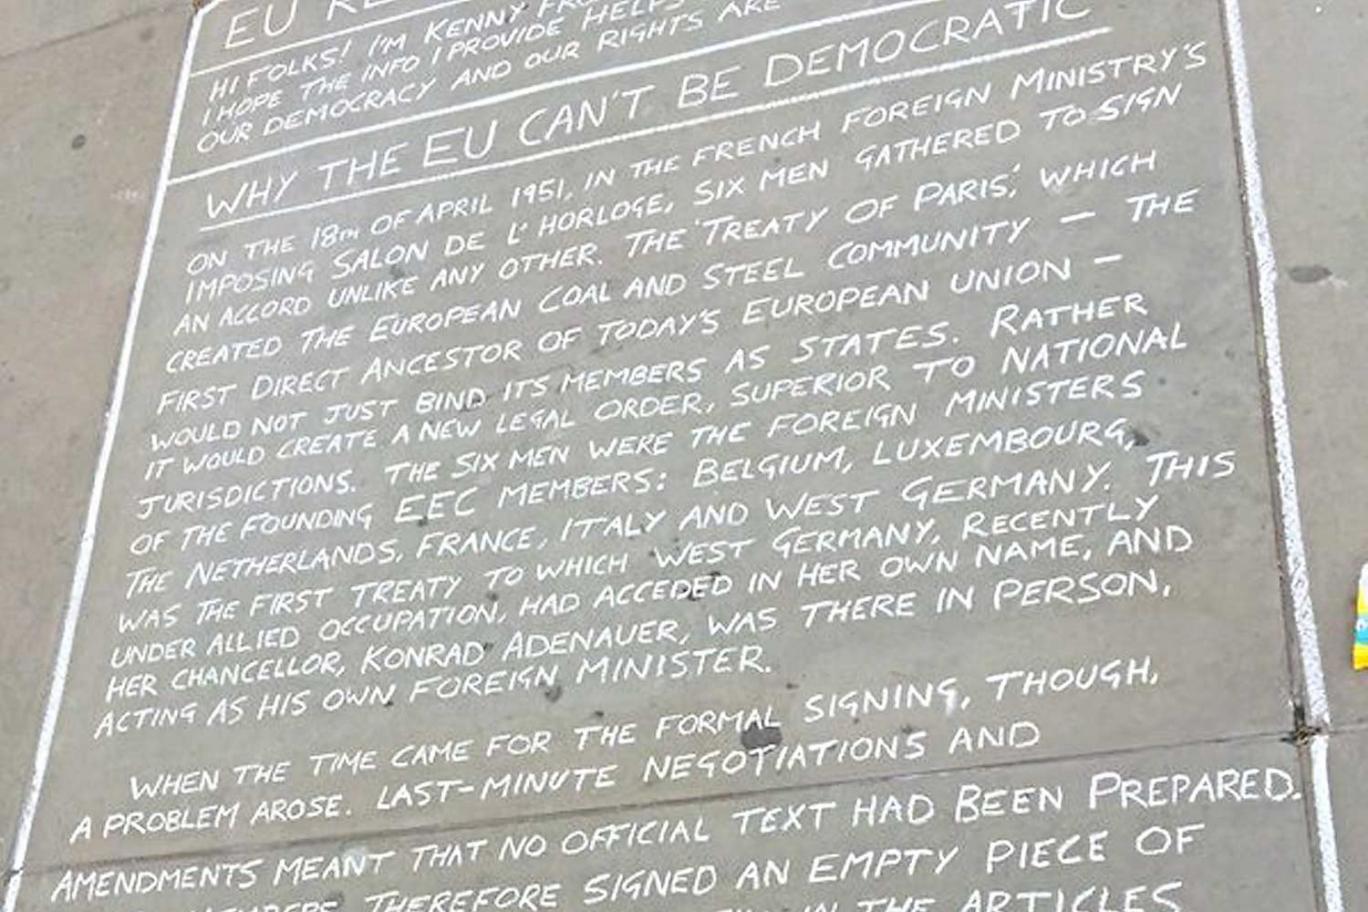 EU
HI FOLKS! I'M KENNY
I HOPE THE INFO I PROVIDE HELPS
OUR DEMOCRACY AND OUR RIGHTS ARE
WHY THE EU CAN'T BE DEMOCRATIC
ON THE 18TH OF APRIL 1951, IN THE FRENCH FOREIGN MINISTRY'S
IMPOSING SALON DE L'HORLOGE, SIX MEN GATHERED TO SIGN
AN ACCORD UNLIKE ANY OTHER. THE 'TREATY OF PARIS', WHICH
CREATED THE EUROPEAN COAL AND STEEL COMMUNITY – THE
FIRST DIRECT ANCESTOR OF TODAY'S EUROPEAN UNION –
WOULD NOT JUST BIND ITS MEMBERS AS STATES. RATHER
IT WOULD CREATE A NEW LEGAL ORDER, SUPERIOR TO NATIONAL
JURISDICTIONS. THE SIX MEN WERE THE FOREIGN MINISTERS
OF THE FOUNDING EEC MEMBERS: BELGIUM, LUXEMBOURG,
THE NETHERLANDS, FRANCE, ITALY AND WEST GERMANY. THIS
WAS THE FIRST TREATY TO WHICH WEST GERMANY, RECENTLY
UNDER ALLIED OCCUPATION, HAD ACCEDED IN HER OWN NAME, AND
HER CHANCELLOR, KONRAD ADENAUER, WAS THERE IN PERSON,
ACTING AS HIS OWN FOREIGN MINISTER.
WHEN THE TIME CAME FOR THE FORMAL SIGNING, THOUGH,
A PROBLEM AROSE. LAST-MINUTE NEGOTIATIONS AND
AMENDMENTS MEANT THAT NO OFFICIAL TEXT HAD BEEN PREPARED.
THEREFORE SIGNED AN EMPTY PIECE OF
IN THE ARTICLES